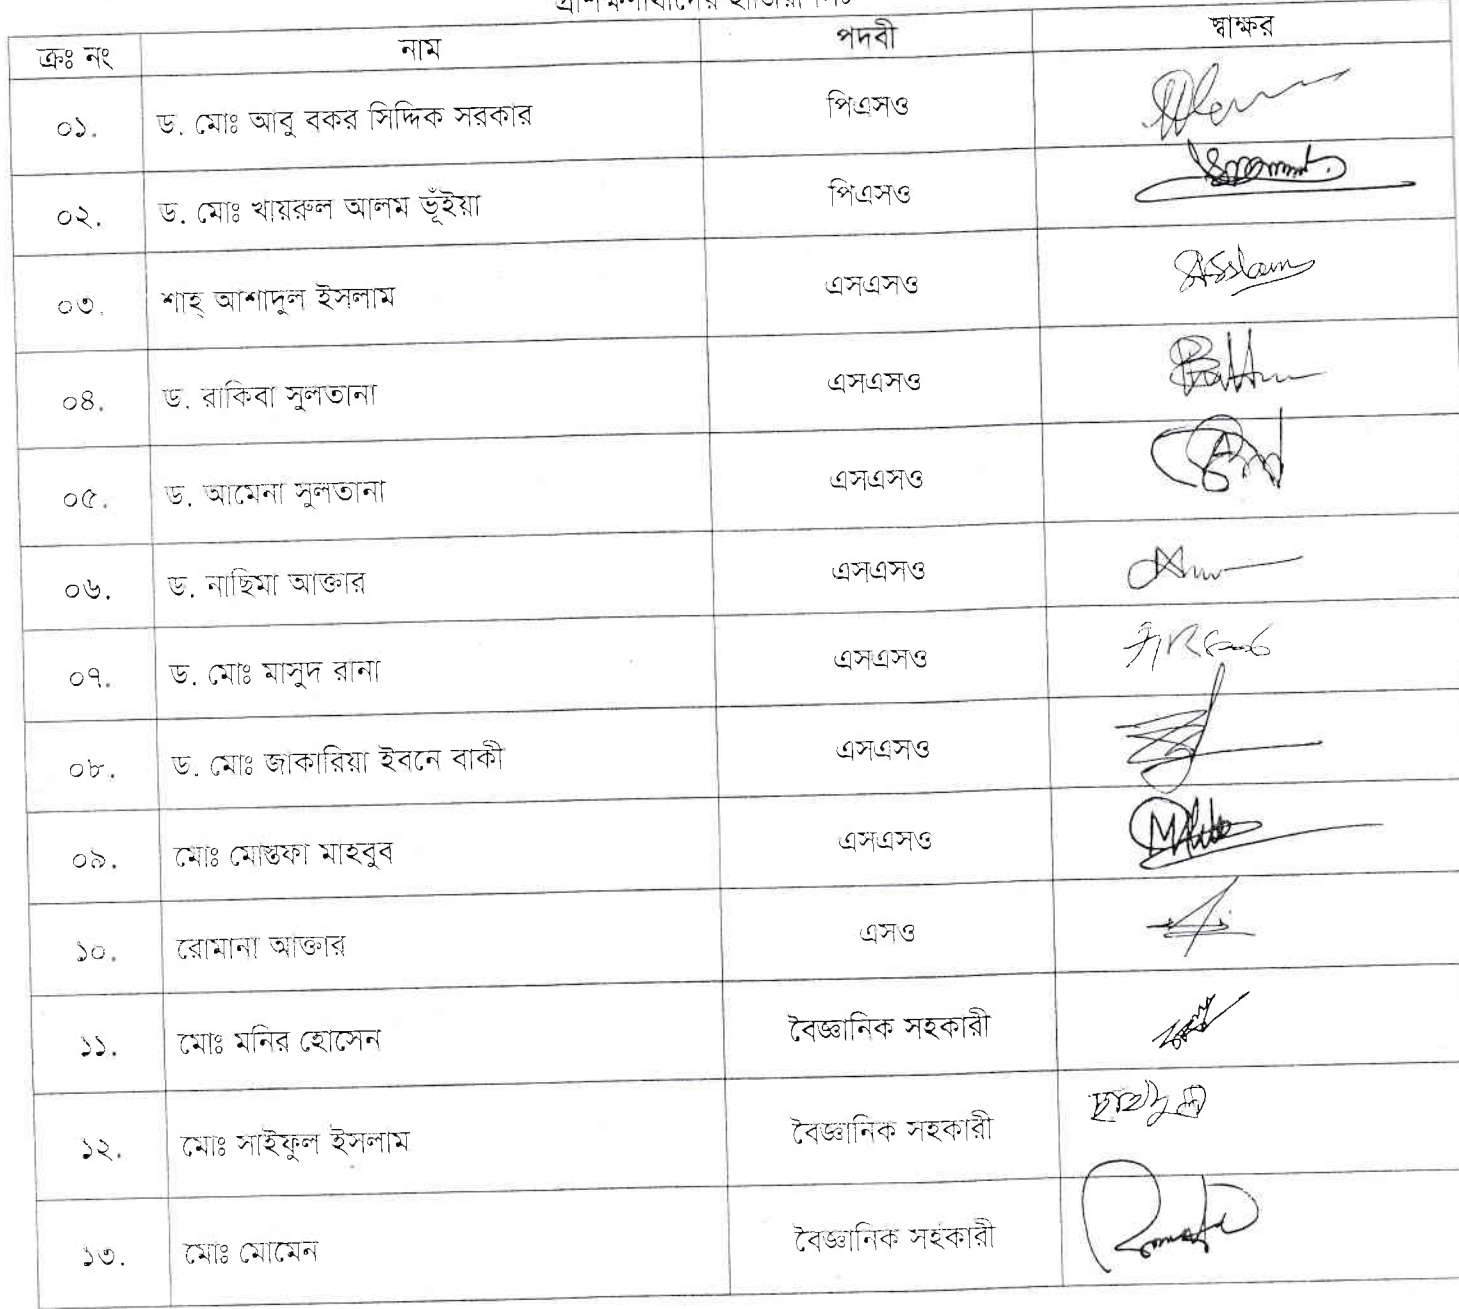 ক্রঃ নং নাম পদবী স্বাক্ষর
০১. ড. মোঃ আবু বকর সিদ্দিক সরকার পিএসও
০২. ড. মোঃ খায়রুল আলম ভূঁইয়া পিএসও
০৩. শাহ্ আশাদুল ইসলাম এসএসও
০৪. ড. রাকিবা সুলতানা এসএসও
০৫. ড. আমেনা সুলতানা এসএসও
০৬. ড. নাছিমা আক্তার এসএসও
০৭. ড. মোঃ মাসুদ রানা এসএসও
০৮. ড. মোঃ জাকারিয়া ইবনে বাকী এসএসও
০৯. মোঃ মোস্তফা মাহবুব এসএসও
১০. রোমানা আক্তার এসও
১১. মোঃ মনির হোসেন বৈজ্ঞানিক সহকারী
১২. মোঃ সাইফুল ইসলাম বৈজ্ঞানিক সহকারী
১৩. মোঃ মোমেন বৈজ্ঞানিক সহকারী